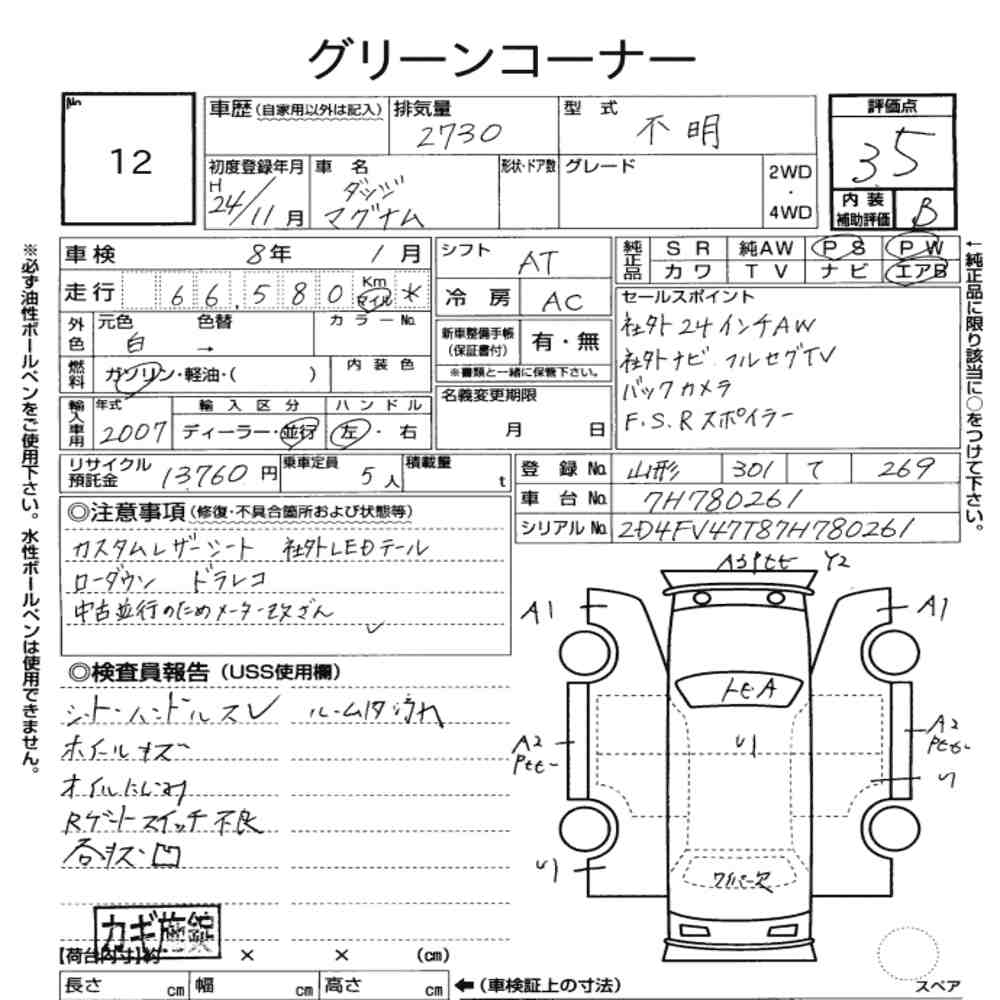 グリーンコーナー
No. 12
車歴(自家用以外は記入) 排気量 2730 型式 不明 評価点 3.5
初度登録年月 H24/11月 車名 ダッジ マグナム 形状・ドア数 グレード 2WD・4WD 内装補助評価 B
車検 8年1月
走行 66,580 Km マイル *
外色 元色 白 色替 → カラーNo.
燃料 ガソリン・軽油・( ) 内装色
輸入車用 年式 2007 輸入区分 ディーラー・並行 ハンドル 左・右
シフト AT
冷房 AC
新車整備手帳(保証書付) 有・無
※書類と一緒に保管下さい。
名義変更期限 月 日
純正品 SR 純AW PS PW
カワ TV ナビ エアB
セールスポイント
社外24インチAW
社外ナビ フルセグTV
バックカメラ
F.S.Rスポイラー
リサイクル預託金 13760円 乗車定員 5人 積載量 t
登録No. 山形 301 て 269
車台No. 7H780261
シリアルNo. 2D4FV47T87H780261
◎注意事項(修復・不具合箇所および状態等)
カスタムレザーシート 社外LEDテール
ローダウン ドラレコ
中古並行のためメーター改ざん
◎検査員報告(USS使用欄)
シート・ハンドルスレ ルーム内汚れ
ホイールキズ
オイルにじみ
Rゲートスイッチ不良
各キズ・凹
カギ施錠
【荷台内寸】約 × × (cm)
長さ cm 幅 cm 高さ cm ←(車検証上の寸法)
※必ず油性ボールペンをご使用下さい。水性ボールペンは使用できません。
←純正品に限り該当に○をつけて下さい。
Y2
A1 A1
トビA
A2 U1 A2
U1
ワイパー欠
スペア